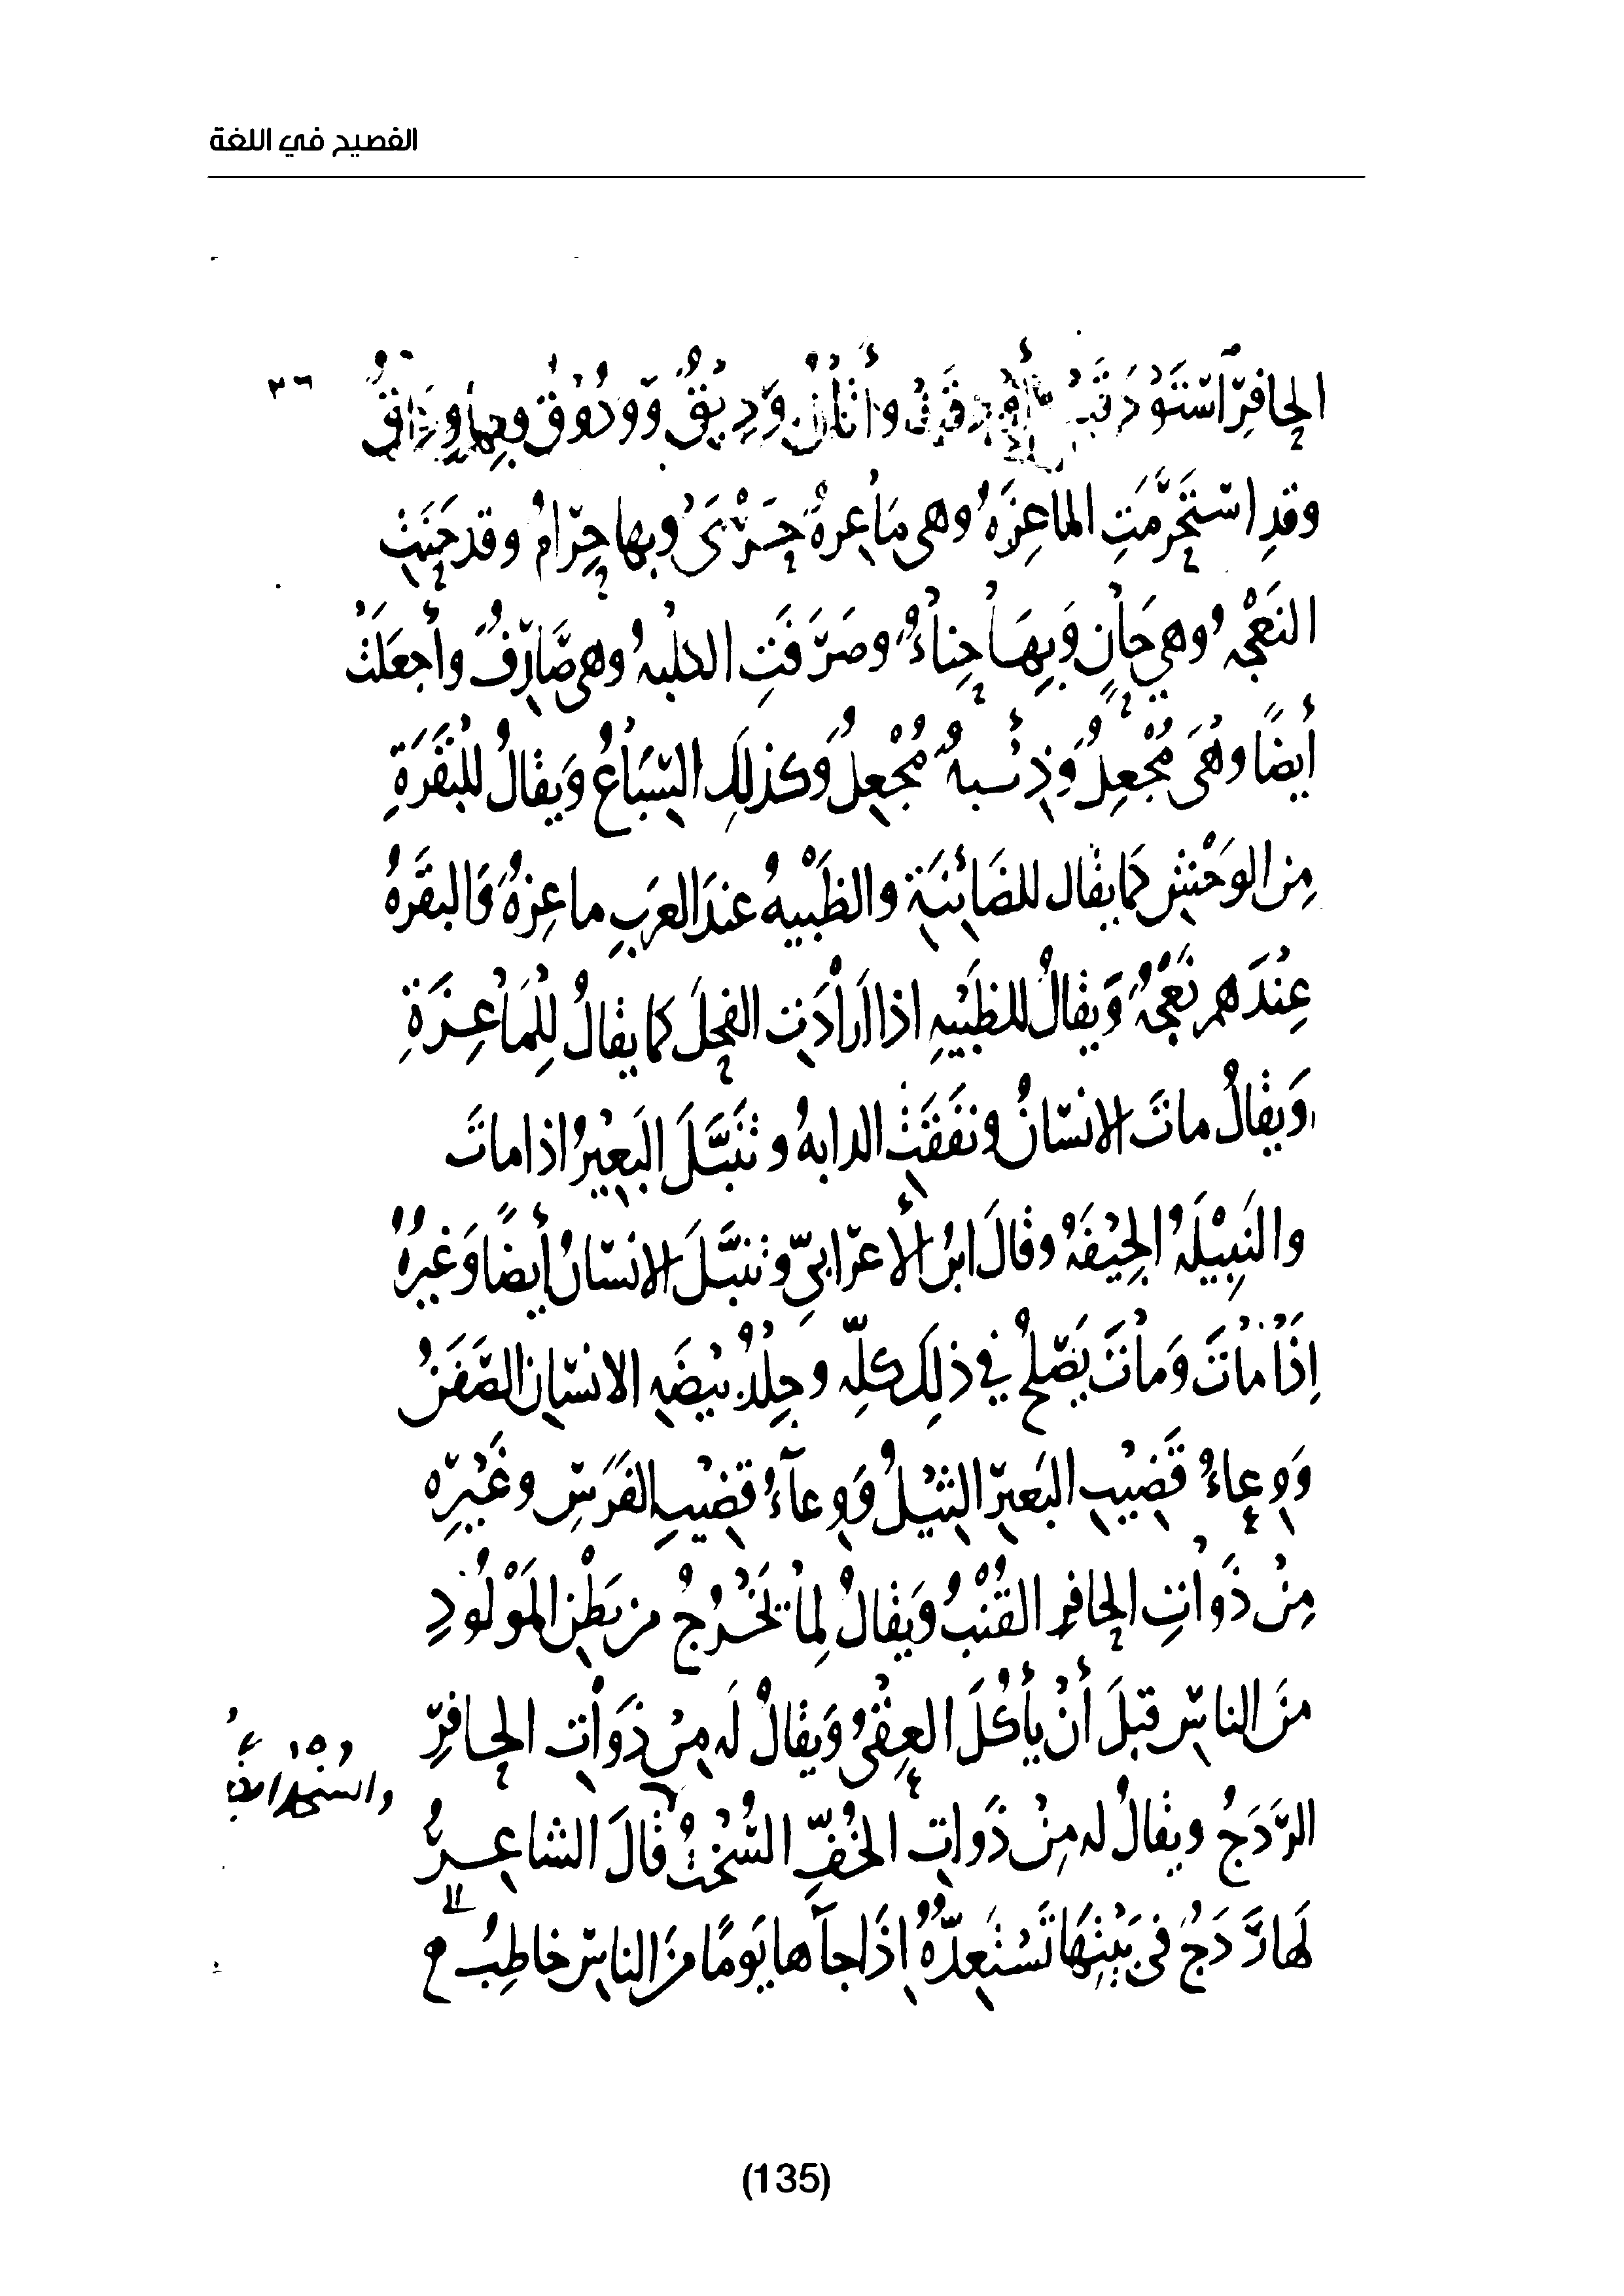 الفصيح في اللغة
٣٦
الحافِرِ اسْتَوْدَقَتْ وأَوْدَقَتْ وأَتَانٌ وَدِيْقٌ وَوَدُوْقٌ وبِها وِدَاقٌ
وقدِ اسْتَحْرَمَتِ الماعِزَةُ وهى مَاعِزةٌ حَرْمَىٰ وبها حِرَامٌ وقد حَنَتِ
النَعْجةُ وهي حَانٍ وَبِهَا حِناءٌ وصَرَفَتِ الكلبةُ وهى صَارِفٌ وأَجعَلَتْ
أيضًا وَهْىَ مُجْعِلٌ وَذِئْبةٌ مُجْعِلٌ وكذلِكَ السِّبَاعُ وَيقالُ للبَقَرَةِ
مِن الوَحْشِ كما يقال للضَائِنَةِ والظَبْيةُ عندَ العَربِ ماعِزةٌ وَالبقَرةُ
عِنْدَهم نَعْجَةٌ وَيقالُ للظَبْيةِ اذا ارَادَتِ الفحلَ كما يقالُ لِلْمَاعِزَةِ
وَيقالُ ماتَ الانسَانُ ونَفَقَتِ الدابةُ وتَنَبَّلَ البَعِيْرُ اذا ماتَ
والنَبِيْلَةُ الجِيْفَةُ وقالَ ابنُ الأَعرَابيّ وتنَبَّلَ الانسَانُ أيضًا وَغيرُهُ
إذَا مَاتَ وَمَاتَ يَصْلحُ في ذلِكَ كلِّه وجِلْدُ بَيْضَةِ الانسَانِ الصَفَنُ
وَوِعاءُ قَضِيْبِ البَعيرِ الثِيْلُ وَوِعآءُ قَضِيْبِ الفَرَسِ وغَيْرِه
مِنْ ذَوَاتِ الحافِرِ القُنْبُ وَيقالُ لِمَا يَخْرُجُ من بَطْنِ المَوْلُودِ
مِنَ الناسِ قبلَ أنْ يأكُلَ العِقْىُ وَيقالُ لَه مِن ذَوَاتِ الحافِرِ
الرَدَجُ ويقالُ له مِنْ ذَواتِ الخُفِّ السُّخْتُ قالَ الشاعِرُ
لَها رَدَجٌ فى بَيْتِهَا تَسْتَعِدُّهُ إذَا جآها يَومًا مِنَ الناسِ خاطِبُ
(135)